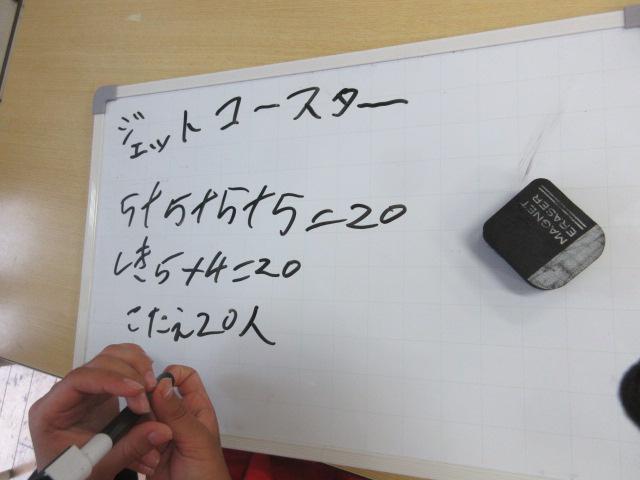 ジェットコースター
5+5+5+5=20
しき5+4=20
こたえ20人
MAGNET
ERASER